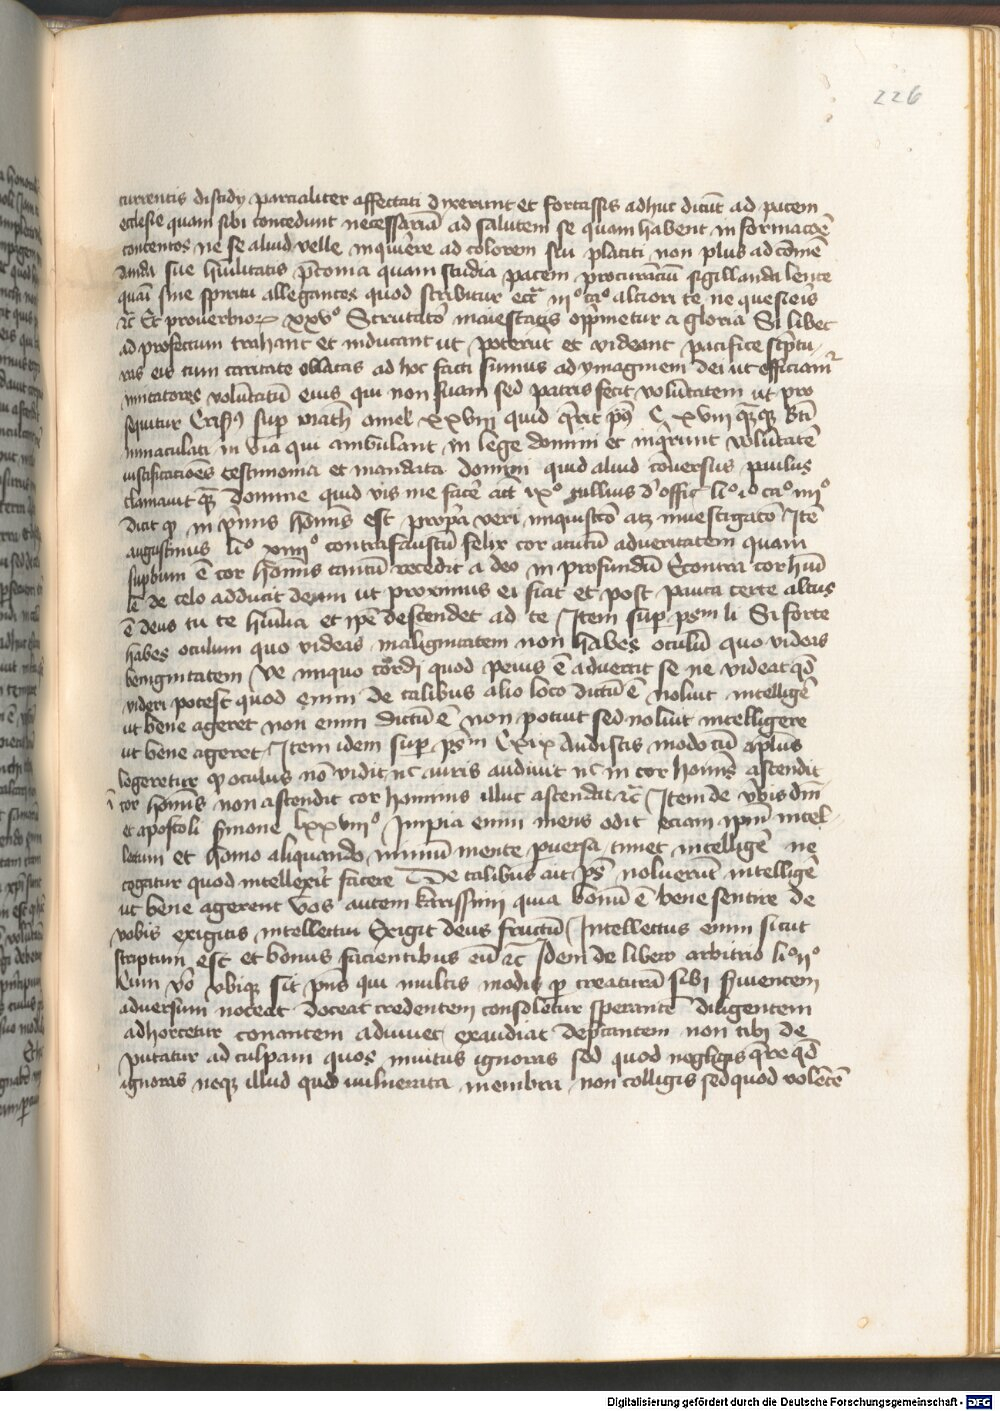 226
currentis discidy parcialiter affectati dixerunt et fortassis adhuc dicūt ad pacem
ecclesie quam sibi concedunt necessariā ad salutem se quam habent informacōē
contentos ne se aliud velle inquirere ad colorem sui placiti non plus ad
sue huīlitatis quam studia pacem sigillanda
quasi sine spiritu allegantes quod scribitur ecc̄ iiiº caº alciori te ne quesieris
⁊c̄ Et proverbioꝝ xxvº Scrutatōr maiestatis opp̄metur a gloria Si libet
ad profectum trahant et inducant ut poterūt et videant pacifice sc̄ptu-
ras eis cum caritate oblatas ad hoc facti sumus ad ymaginem dei ut efficiamᷣ
imitatores volūtatū eius qui non suam sed patris fecit volūtatem ut pro
sequitur Cris⁹ sup math omel xxviii quid p̄s C xviii Bt̄i
immaculati in via qui ambulant in lege domini et inq̄runt volūtatē
iustificacioēs testimonia et mandata domini quid aliud cōversus paulus
clamavit domine quid vis me facē act ixº tullius d' offic liº iº caº iiiiº
dicit ꝙ in p̄mis homīs est prop̄a veri inquisicō atꝫ investigacō Itē
augustinus liº xiiiiº contra faustū felix cor acutū ad veritatem quam
sup̄bum ē cor homīs tantū recedit a deo in profundū Ecōtra cor huīl
le de celo adducit deum ut proximus ei fiat et post pauca certe altus
ē deus tu te huīlia et ip̄e descendet ad te Item sup ps̄m li Si forte
habes oculum quo videas malignitatem non habes oculū quo videas
benignitatem Ve iniquo cordi quod peius ē advertit se ne videat qd̄
videri potest quod enim de talibus alio loco dictū ē noluit intelligē
ut bene ageret non enim dictū ē non potuit sed noluit intelligere
ut bene ageret Item idem sup ps̄m Cxix Audistis modo cū apl̄us
legeretur ꝙ oculus nō vidit nc̄ auris audivit nc̄ in cor homīs ascendit
ī cor homīs non ascendit cor hominis illuc ascendat ⁊c̄ Item de v̄bis dn̄i
et apostoli s̄mone lxxviiiº Impia enim mens odit eciam ip̄m intel-
lectum et homo aliquando nimiū mente p̄versa timet intelligē ne
cogatur quod intellexit facere De talibus ait p̄s noluerūt intelligē
ut bene agerent Vos autem karissimi quia bonū ē bene sentire de
vobis exigitis intellectū Exigit deus fructū Intellectus enim sicut
scriptum est et bonus facientibus eū ⁊c̄ Idem de libero arbitrio liº iiº
Cum v̄o ubique sit p̄ns qui multis modis p creaturā sibi s̄vientem
adversum doceat credentem consoletur sperantē diligentem
adhortetur conantem adiuvet exaudiat dep̄cantem non tibi de
putatur ad culpam quod invitus ignoras sed quod negligis q̄rere qd̄
ignoras neqꝫ illud quod vulnerata membra non colligis sed quod volētē
Digitalisierung gefördert durch die Deutsche Forschungsgemeinschaft - DFG